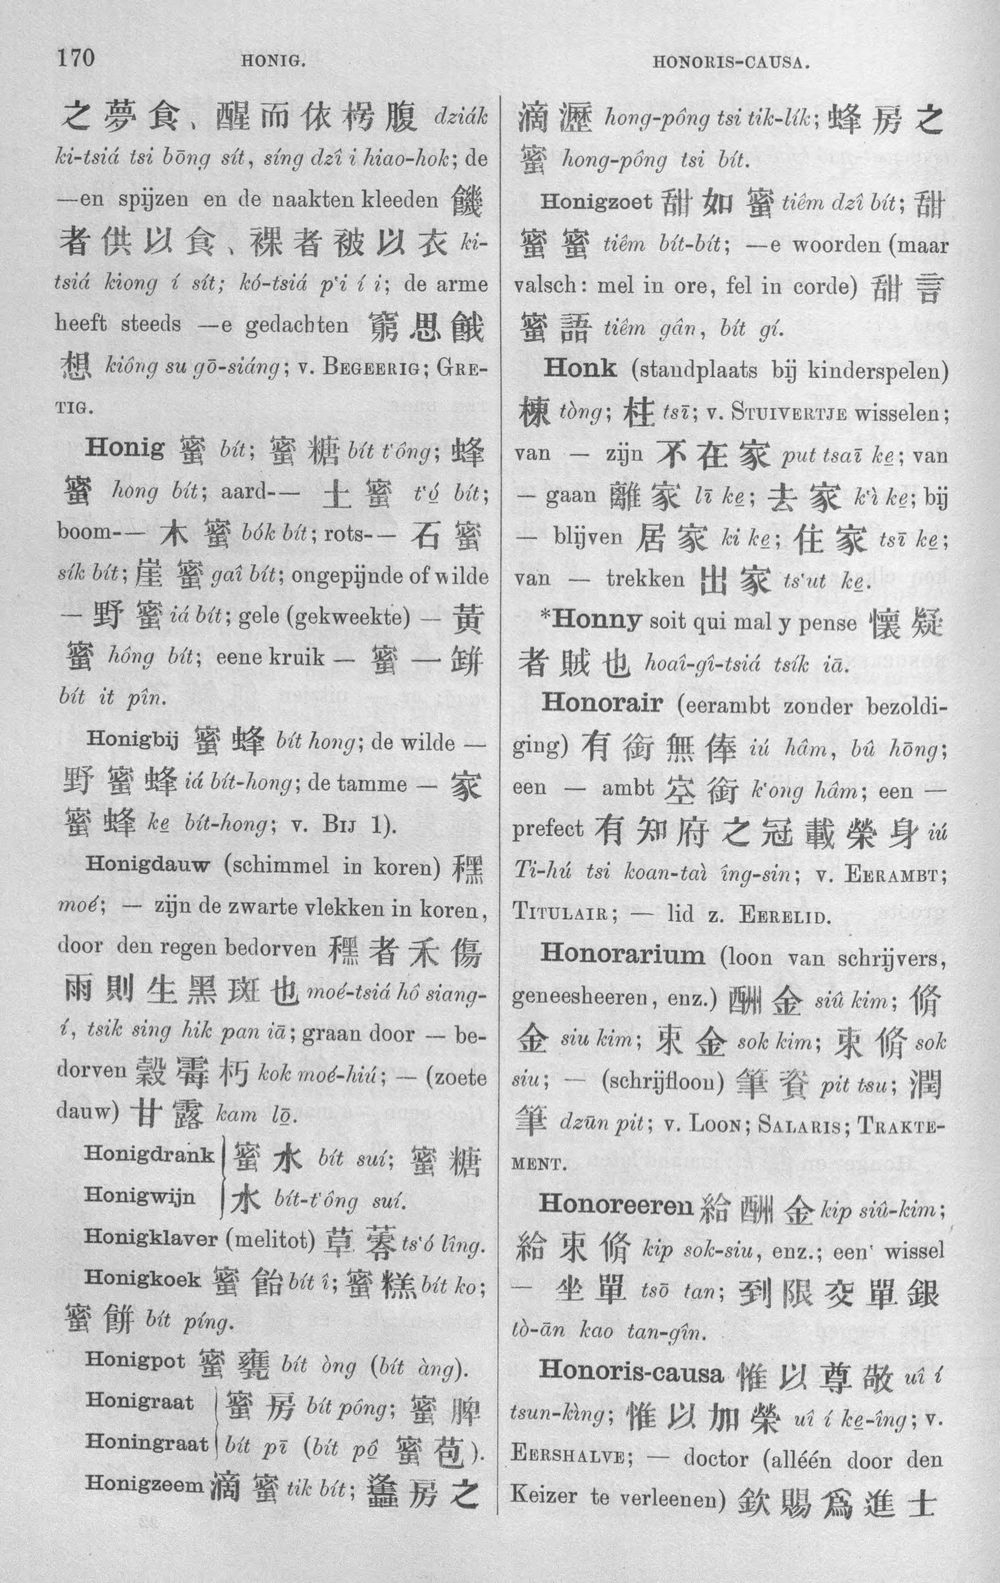 170
HONIG.
HONORIS-CAUSA.
之夢食、醒而依枵腹 dziák
ki-tsiá tsi bōng sít, síng dzî i hiao-hok; de
—en spijzen en de naakten kleeden 饑
者供以食、裸者被以衣 ki-
tsiá kiong í sít; kó-tsiá p'i í i; de arme
heeft steeds —e gedachten 窮思餓
想 kiông su gō-siáng; v. BEGEERIG; GRE-
TIG.
Honig 蜜 bít; 蜜糖 bít t'ông; 蜂
蜜 hong bít; aard-— 土蜜 t'ó bít;
boom-— 木蜜 bók bít; rots-— 石蜜
sík bít; 崖蜜 gaî bít; ongepijnde of wilde
— 野蜜 iá bít; gele (gekweekte) — 黃
蜜 hông bít; eene kruik — 蜜一缾
bít it pîn.
Honigbij 蜜蜂 bít hong; de wilde —
野蜜蜂 iá bít-hong; de tamme — 家
蜜蜂 ke bít-hong; v. BIJ 1).
Honigdauw (schimmel in koren) 穤
moé; — zijn de zwarte vlekken in koren,
door den regen bedorven 者禾傷
雨則生黑斑也 moé-tsiá hô siang-
í, tsik sing hik pan iā; graan door — be-
dorven 穀霉朽 kok moé-hiú; — (zoete
dauw) 甘露 kam lō.
Honigdrank 蜜水 bít suí; 蜜糖
Honigwijn 水 bít-t'ông suí.
Honigklaver (melitot) 草蕶 ts'ó lîng.
Honigkoek 蜜飴 bít î; 蜜糕 bít ko;
蜜餅 bít píng.
Honigpot 蜜甕 bít òng (bít àng).
Honigraat 蜜房 bít pông; 蜜脾
Honingraat bít pī (bít pô 蜜苞).
Honigzeem 滴蜜 tik bít; 蠭房之
滴瀝 hong-pông tsi tik-lík; 蜂房之
蜜 hong-pông tsi bít.
Honigzoet 甜如蜜 tiêm dzî bít; 甜
蜜蜜 tiêm bít-bít; —e woorden (maar
valsch: mel in ore, fel in corde) 甜言
蜜語 tiêm gân, bít gí.
Honk (standplaats bij kinderspelen)
棟 tòng; 柱 tsī; v. STUIVERTJE wisselen;
van — zijn 不在家 put tsaī ke; van
— gaan 離家 lī ke; 去家 k'ì ke; bij
— blijven 居家 ki ke; 住家 tsī ke;
van — trekken 出家 ts'ut ke.
*Honny soit qui mal y pense 懷疑
者賊也 hoaî-gî-tsiá tsík iā.
Honorair (eerambt zonder bezoldi-
ging) 有銜無俸 iú hâm, bû hōng;
een — ambt 空銜 k'ong hâm; een —
prefect 有知府之冠載榮身 iú
Ti-hú tsi koan-taì îng-sin; v. EERAMBT;
TITULAIR; — lid z. EERELID.
Honorarium (loon van schrijvers,
geneesheeren, enz.) 酬金 siû kim; 脩
金 siu kim; 束金 sok kim; 束脩 sok
siu; — (schrijfloon) 筆資 pit tsu; 潤
筆 dzūn pit; v. LOON; SALARIS; TRAKTE-
MENT.
Honoreeren 給酬金 kip siû-kim;
給束脩 kip sok-siu, enz.; een wissel
— 坐單 tsō tan; 到限交單銀
tò-ān kao tan-gîn.
Honoris-causa 惟以尊敬 uî í
tsun-kìng; 惟以加榮 uî í ke-îng; v.
EERSHALVE; — doctor (alléén door den
Keizer te verleenen) 欽賜爲進士